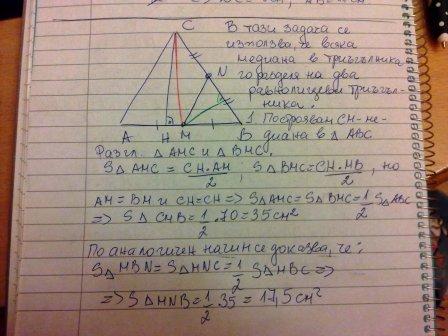 C
N
A
H
M
B
В тази задача се
използва, че всяка
медиана в триъгълника
го разделя на два
равнолицеви триъгъл-
ника.
1. Построявам CM-ме-
диана в △ ABC
Разгл. △ AMC и △ BMC.
S△AMC = CH.AM/2 ; S△BMC = CH.MB/2, но
AM = BM и CH = CH => S△AMC = S△BMC = 1/2 S△ABC
=> S△CMB = 1/2 .70 = 35 cm²
По аналогичен начин се доказва, че:
S△MBN = S△MNC = 1/2 S△MBC =>
=> S△MNB = 1/2 .35 = 17,5 cm²